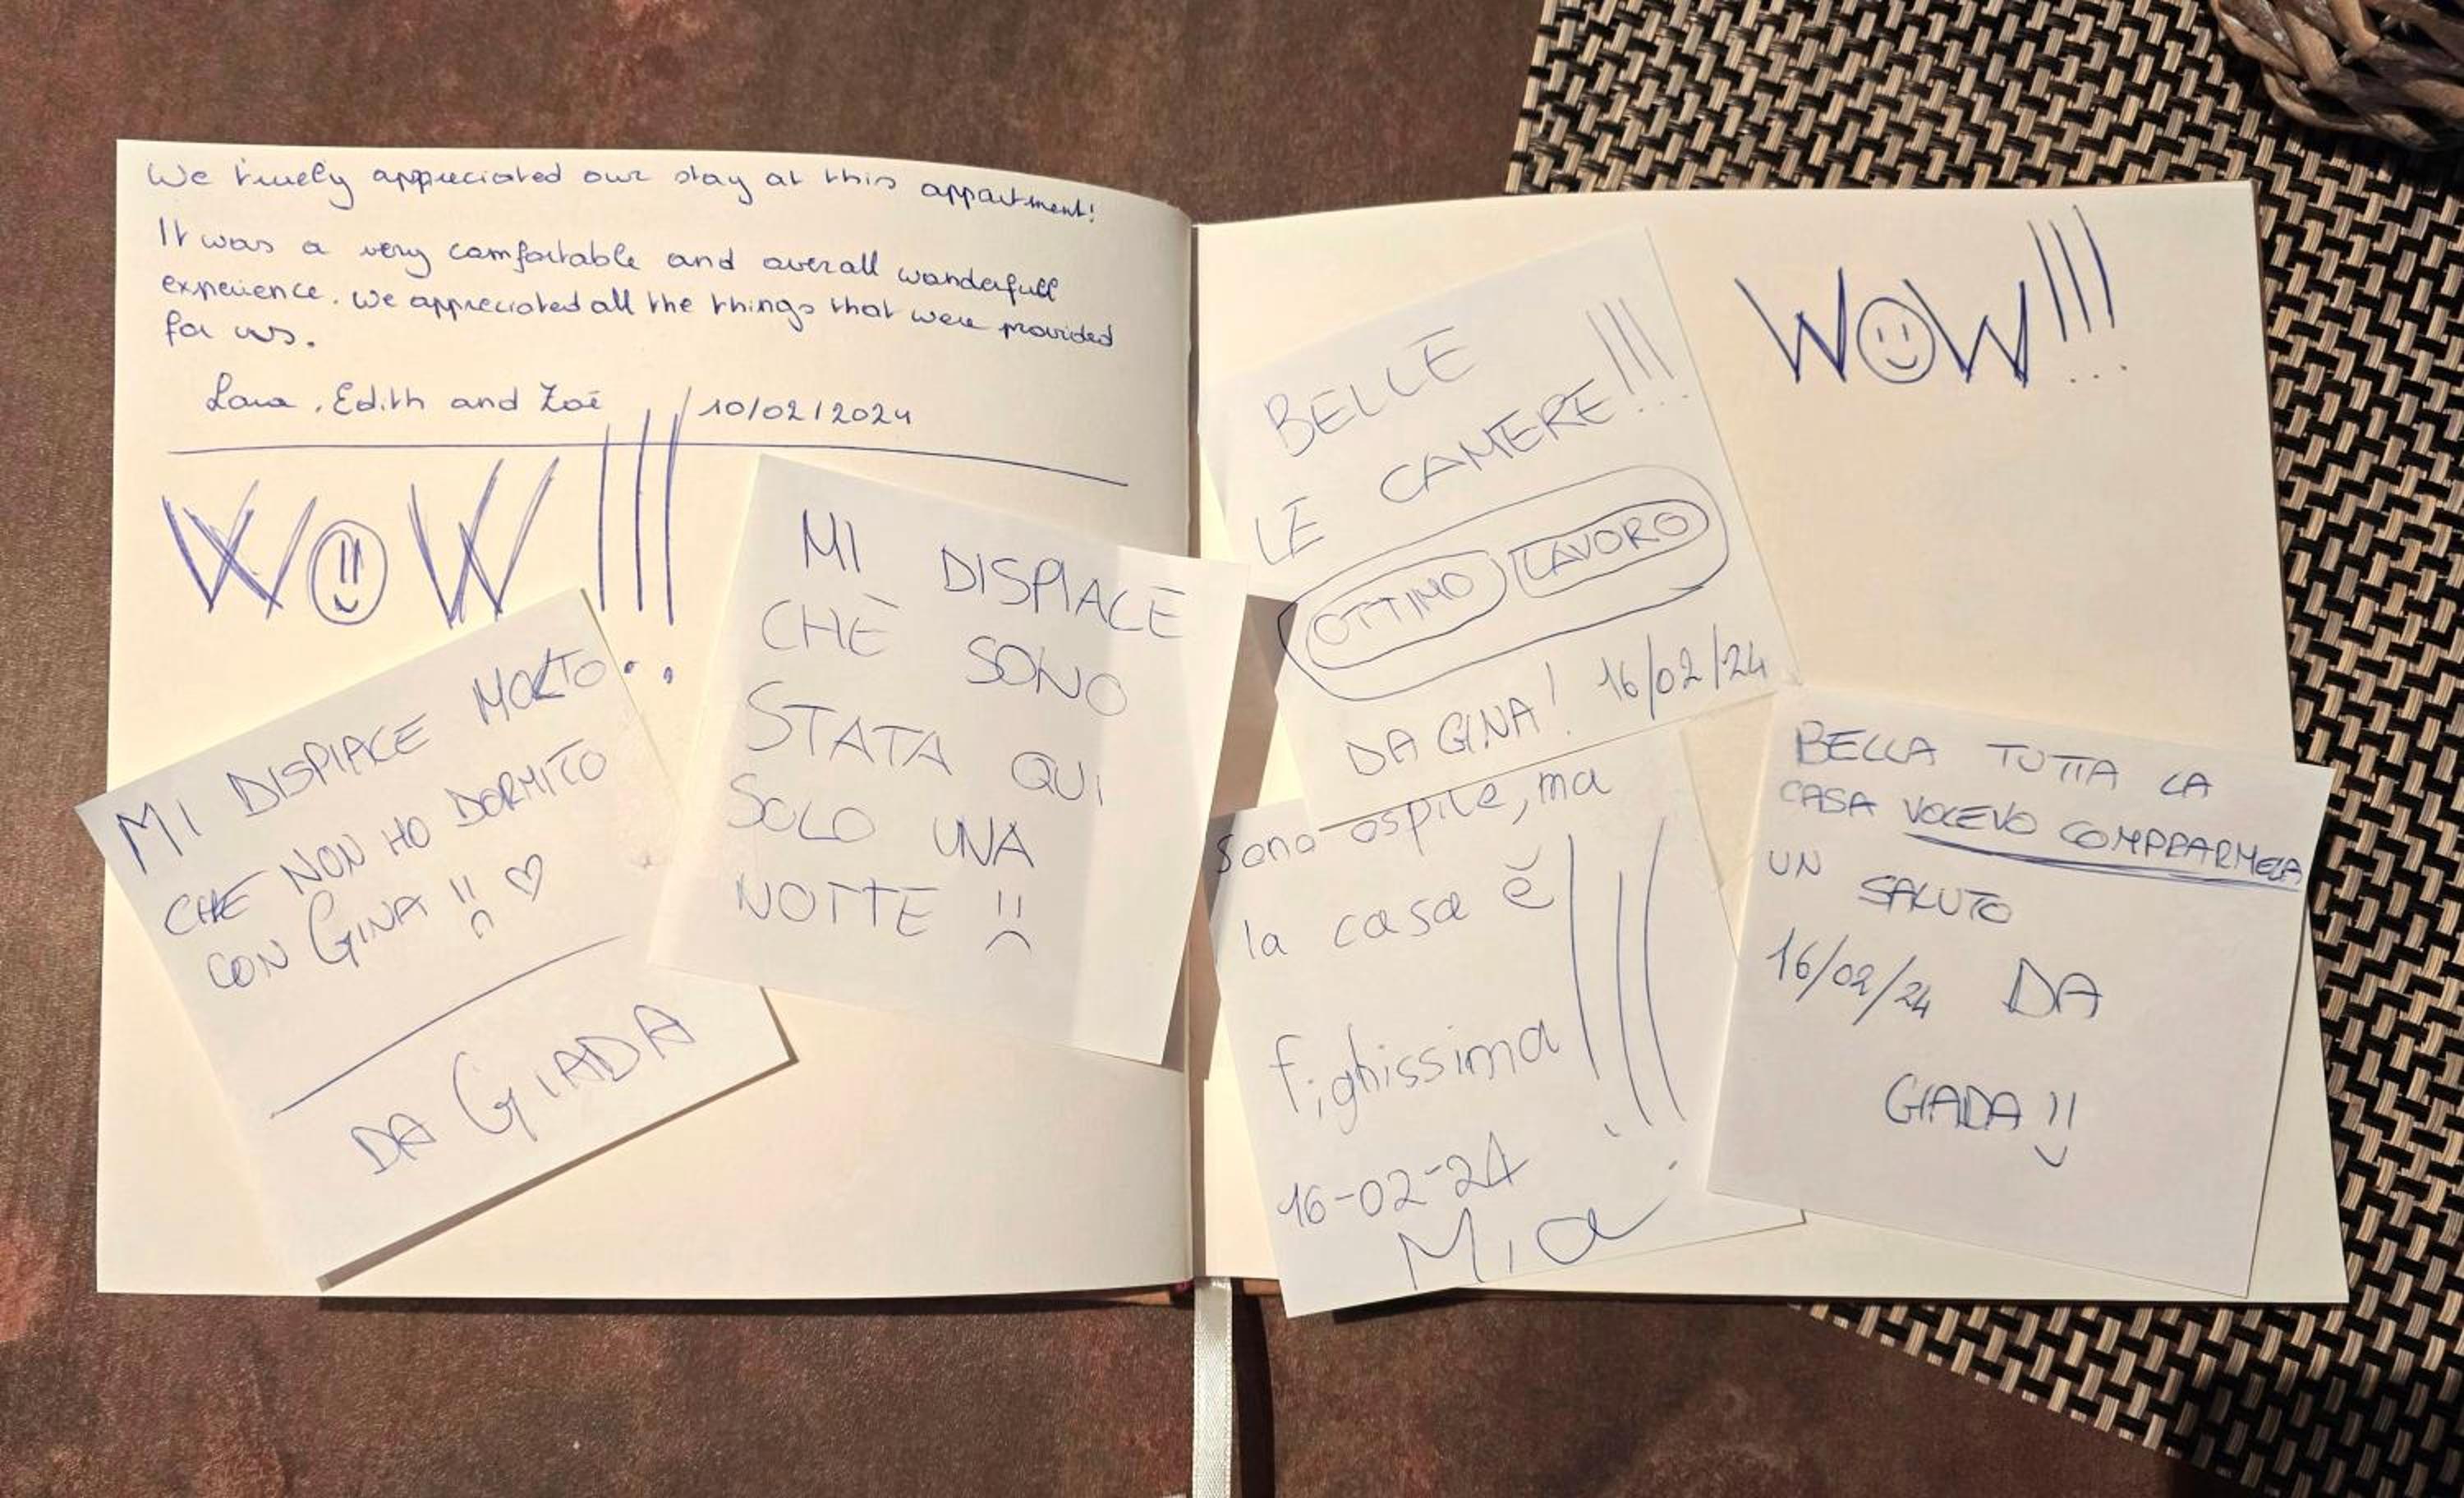 We truely appreciated our stay at this appartment!
It was a very comfortable and overall wonderfull
experience. We appreciated all the things that were provided
for us.
Lana, Edith and Zoé 10/02/2024
WOW!!!
MI DISPIACE MOLTO
CHE NON HO DORMITO
CON GINA!! ♡
DA GIADA
MI DISPIACE
CHE SONO
STATA QUI
SOLO UNA
NOTTE !!
WOW!!!
BELLE
LE CAMERE!!!
OTTIMO LAVORO
DA GINA! 16/02/24
sono ospite, ma
la casa è
fighissima!!!
16-02-24
Mia
BELLA TUTTA LA
CASA VOLEVO COMPRARMELA
UN SALUTO
16/02/24 DA
GIADA!!